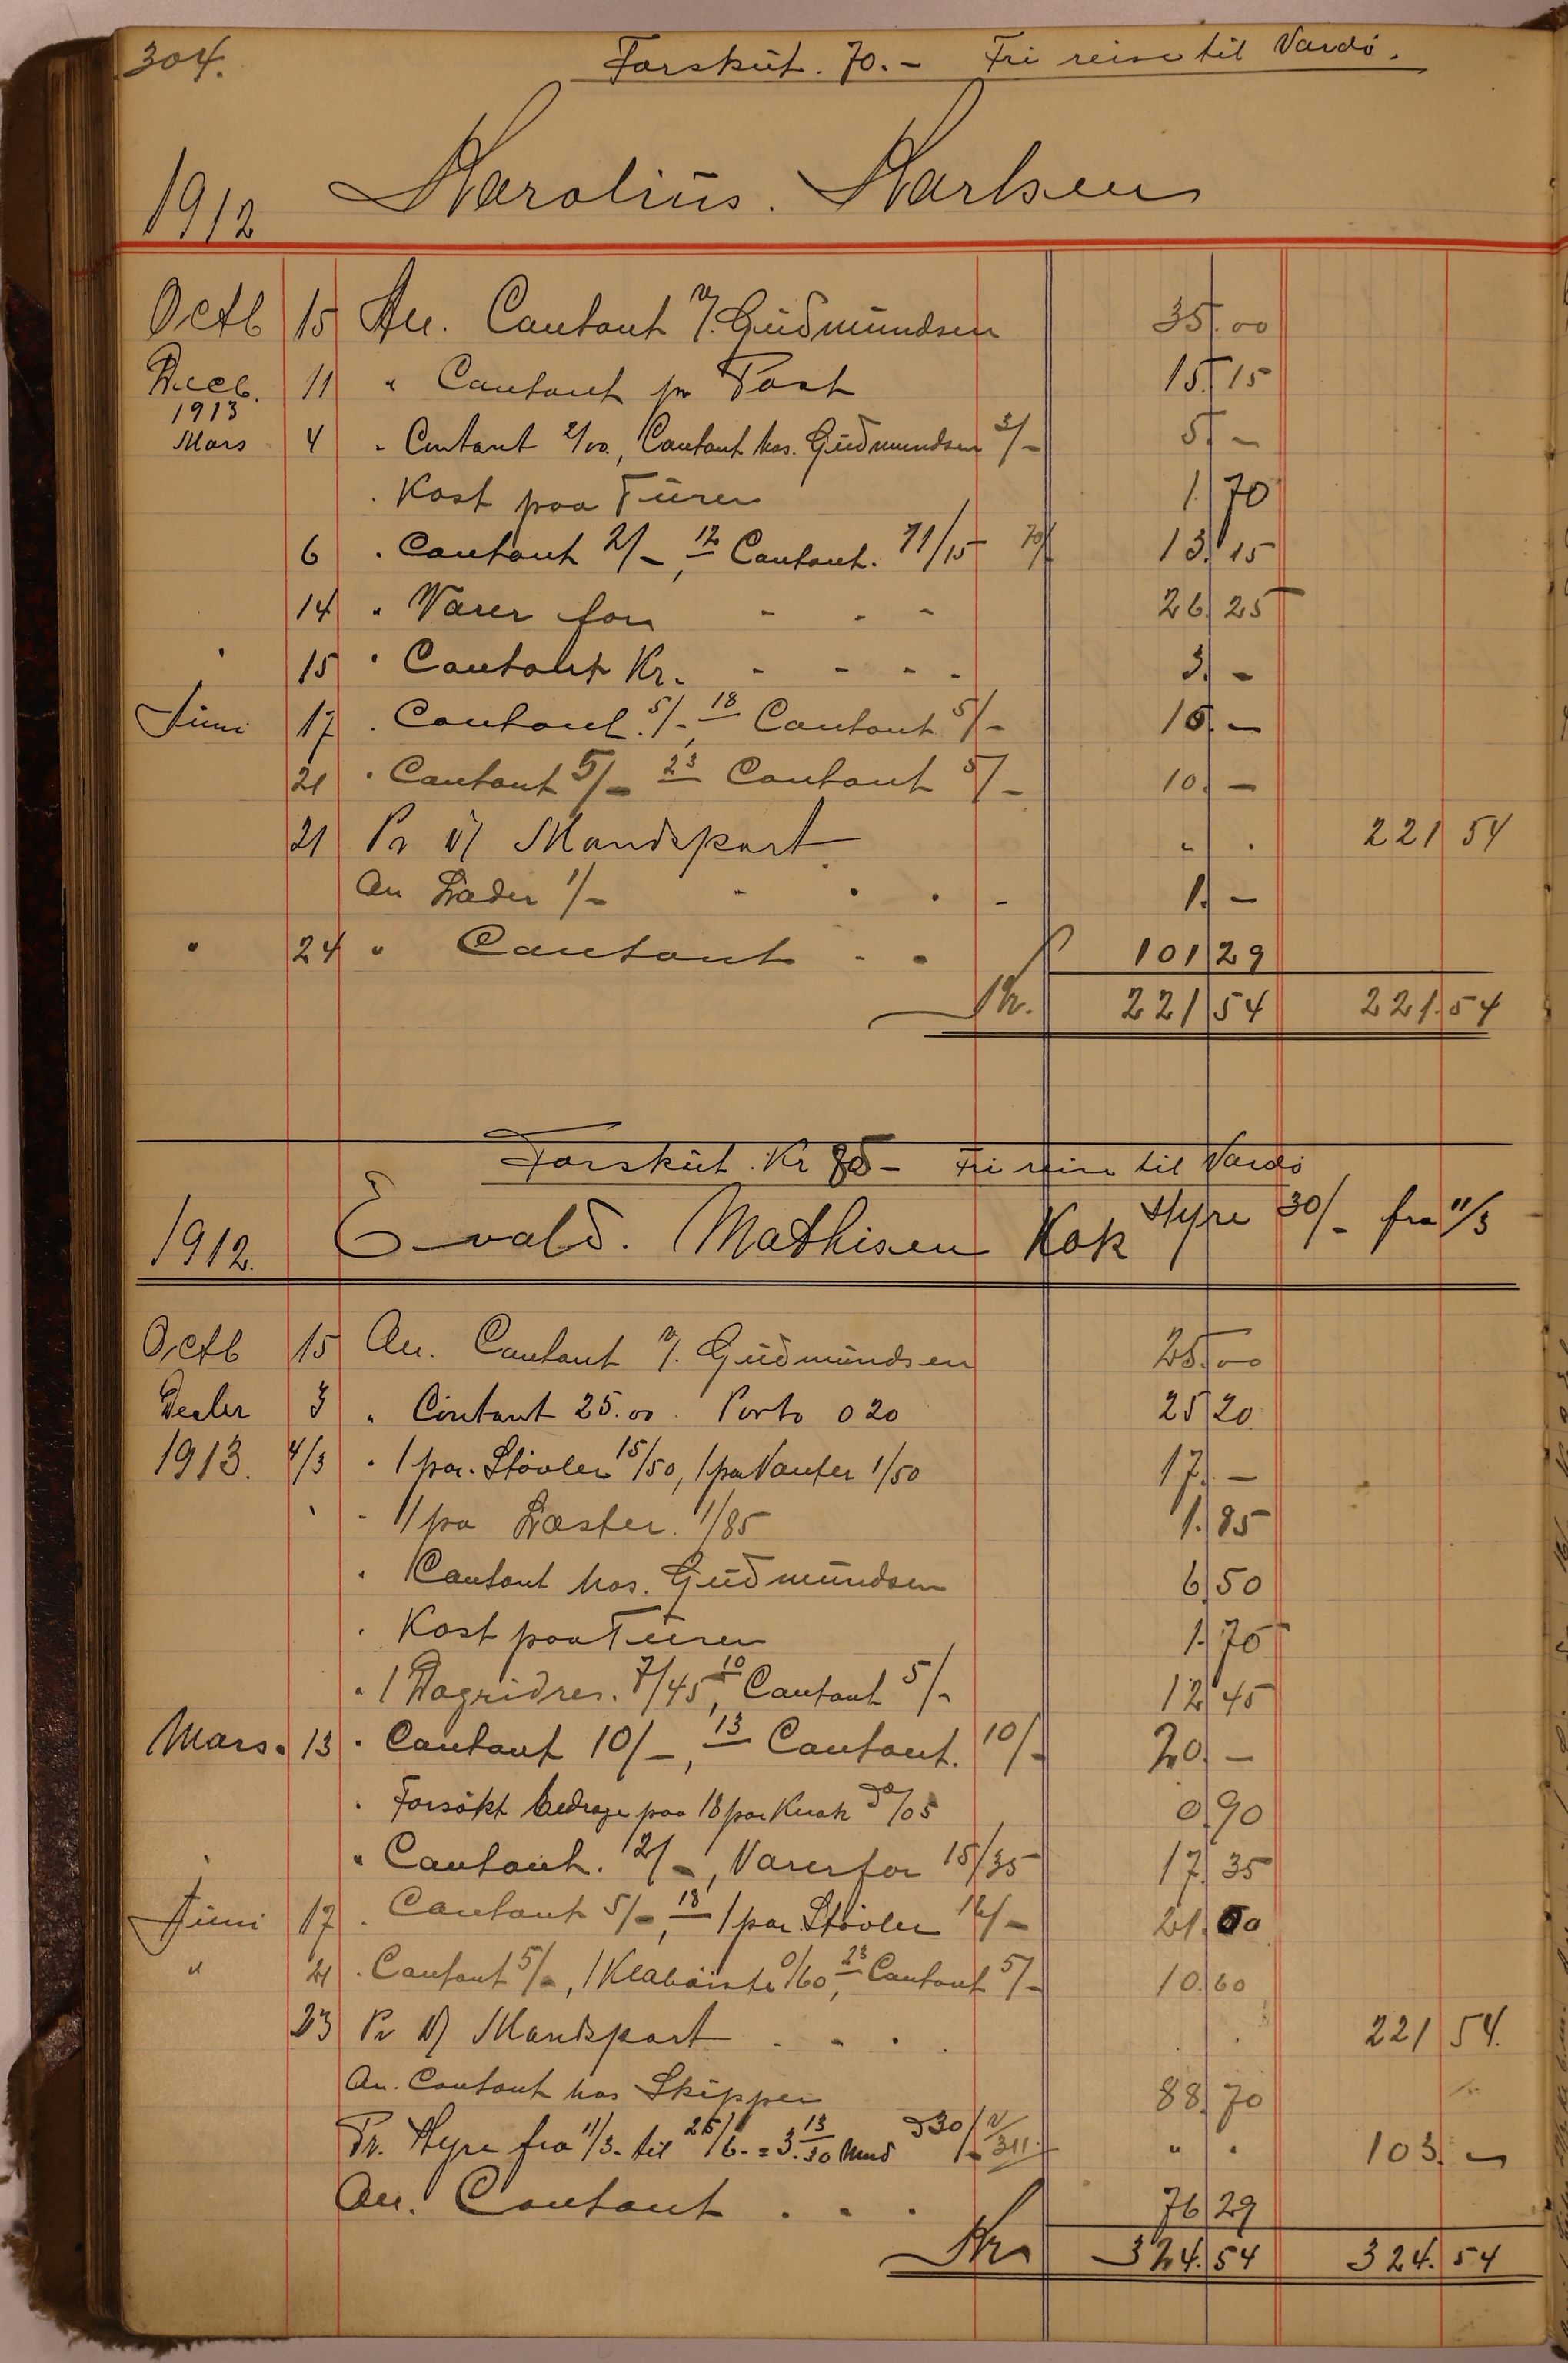 304.
Forsküt. 70.- Fri reise til Vardö.
1912 Karolius. Karlsen
Octb 15 An. Contant v/. Güdmündsen 35.00
Deeb. 11 " Contant pr Post 15.15
1913
Mars 4 " Contant 2/00, Contant hos. Güdmundsen 3/- 5.-
" Kost paa Türen 1.70
6 " Contant 2/-, 12 Contant. 11/15 13.15
14 " Varer for - - - 26.25
" 15 " Contant Kr. - - - - 3.-
Jüni 17 " Contant. 5/-, 18 Contant 5/- 10.-
21 " Contant 5/- 23 Contant 5/- 10.-
21 Pr 1/1 Mandspart " . 221 54
An Læder 1/- - . . - 1.-
" 24 " Contant - - 101 29
Kr. 221 54 221.54
Forsküt. Kr 80- Fri reise til Vardö
1912. Evald. Mathisen Kok Hyre 30/- fra 11/3
Octb 15 An. Contant v/. Güdmündsen 25.00
Decbr 3 " Contant 25.00. Porto 0 20 25 20
1913. 4/3 " 1 par. Støvler 15/50, 1 par Vanter 1/50 17.-
" " 1 par Læster. 1/85 1.85
" Contant hos. Güdmündsen 6 50
" Kost paa Türen 1.70
" 1 Dagridres. 7/45, 10 Contant 5/- 12 45
Mars. 13 " Contant 10/-, 13 Contant. 10/- 20.-
" Forsökt bedrage paa 18 par 0/05 0.90
" Contant. 2/-, Varer for 15/35 17.35
Jüni 17 " Contant 5/-, 18 1 par. Støvler 16/- 21.00
" 21 " Contant 5/-, 1 0/60, 23 Contant 5/- 10.60
23 Pr 1/1 Mandspart . - . . . . 221 54.
An. Contant hos Skipper 88.70
Pr. Hyre fra 11/3. til 25/6. = 3.13/30 Mnd 30/- 311 " . 103.-
An. Contant . . . 76 29
Kr 324.54 324.54